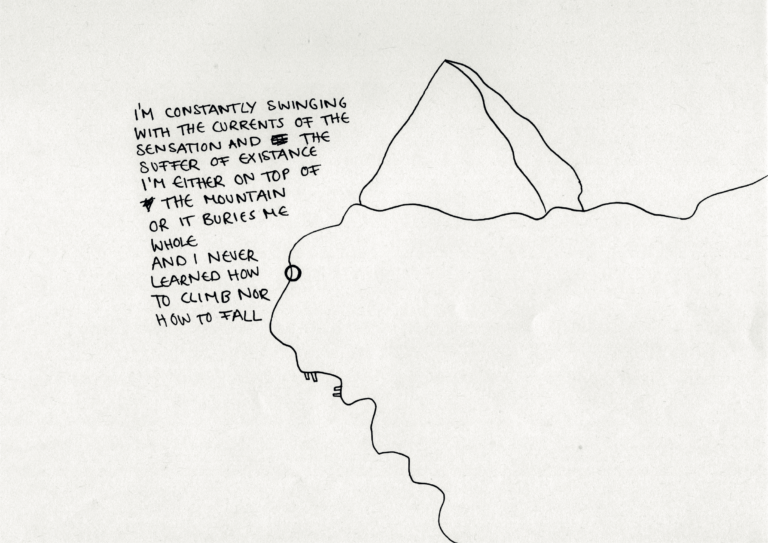 I'M CONSTANTLY SWINGING
WITH THE CURRENTS OF THE
SENSATION AND THE
SUFFER OF EXISTANCE
I'M EITHER ON TOP OF
THE MOUNTAIN
OR IT BURIES ME
WHOLE
AND I NEVER
LEARNED HOW
TO CLIMB NOR
HOW TO FALL